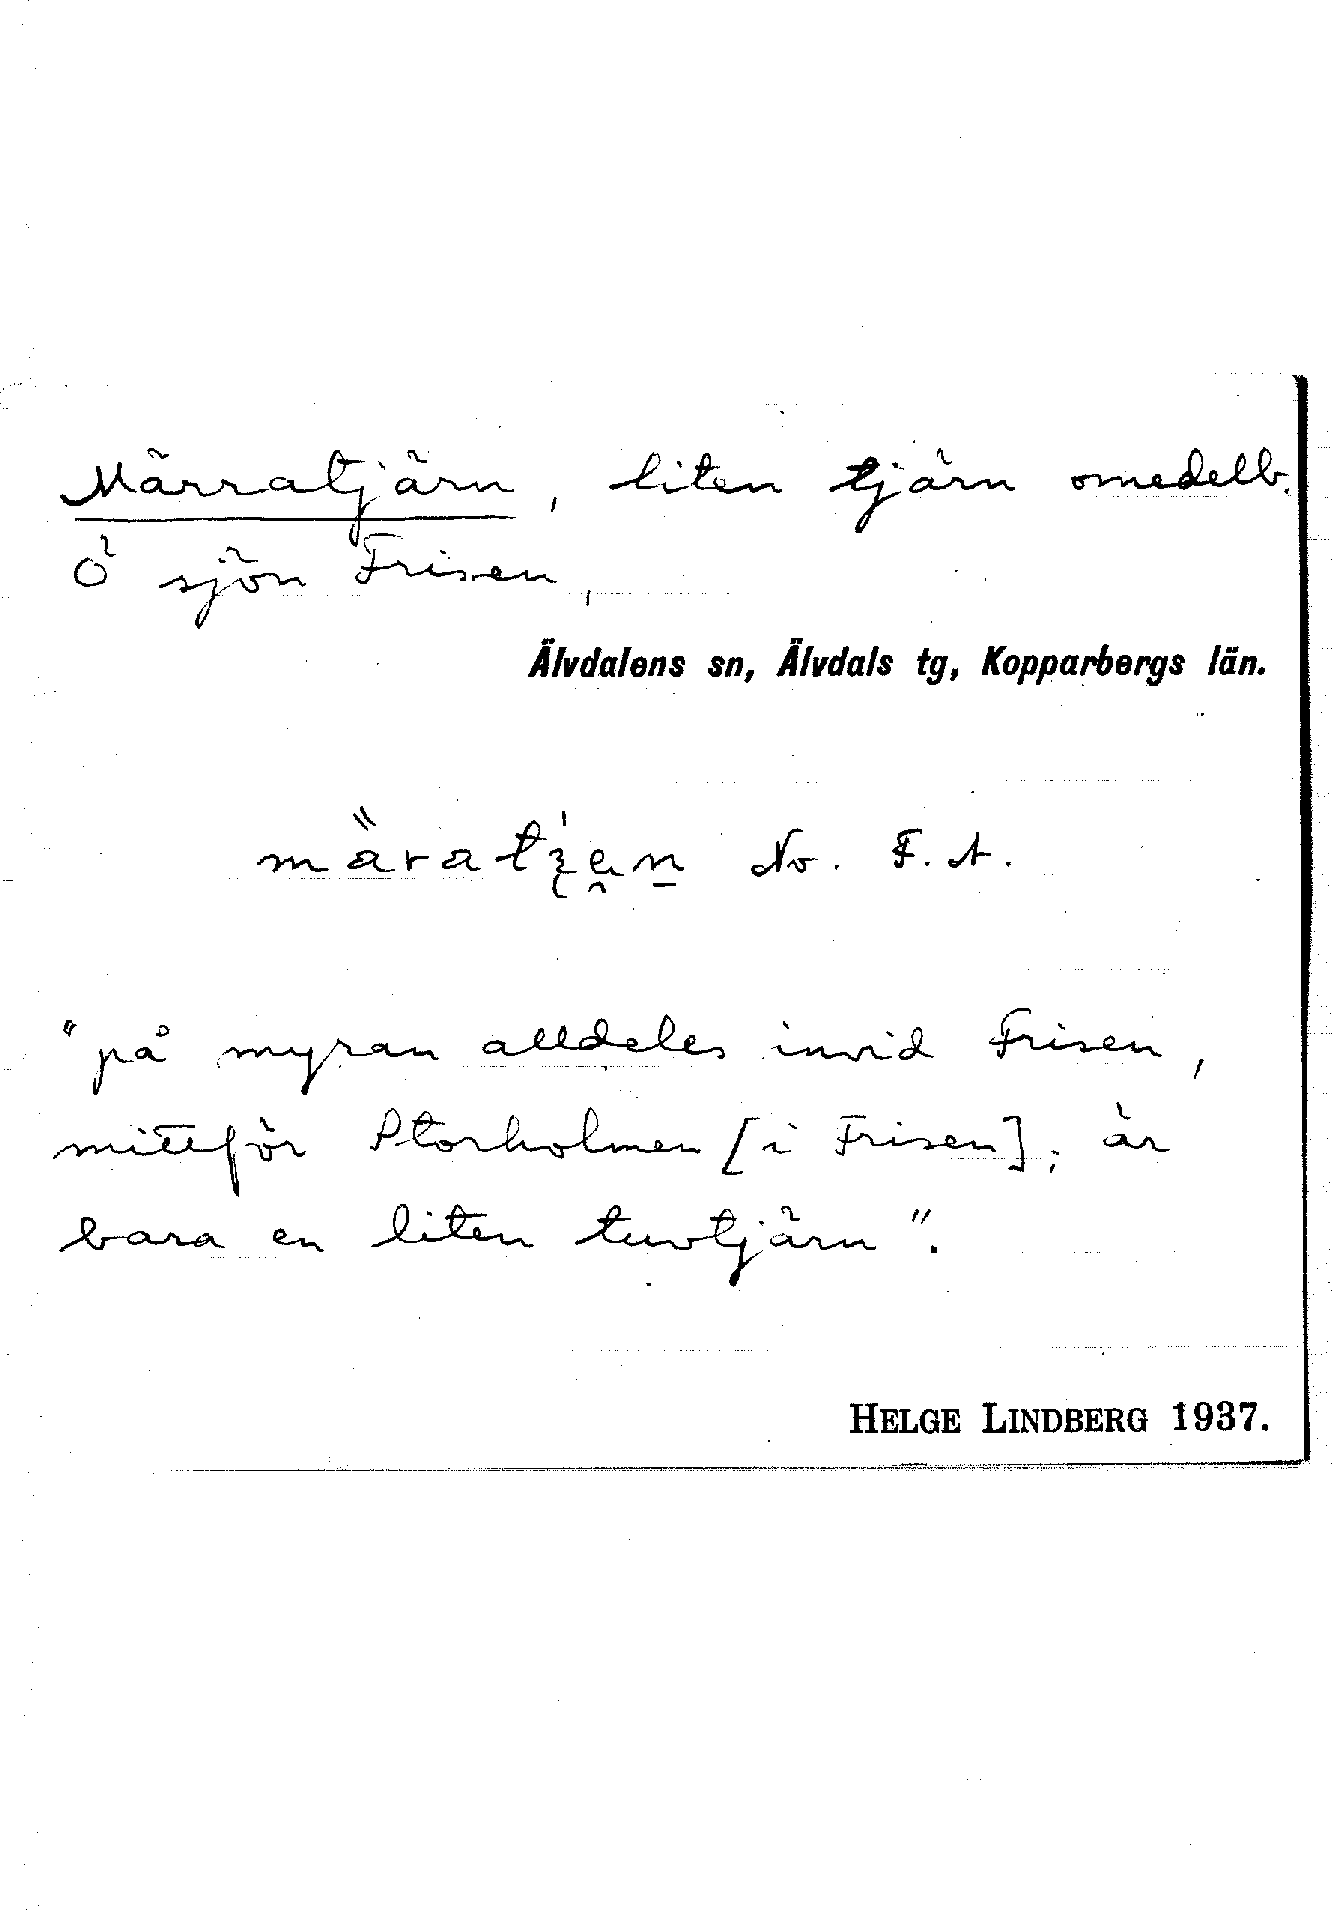 Märratjärn, liten tjärn omedelb.
Ö sjön Frisen,
Älvdalens sn, Älvdals tg, Kopparbergs län.
No. F. A.
"på myran alldeles invid Frisen,
mittför Storholmen [i Frisen]; är
bara en liten tuvtjärn".
HELGE LINDBERG 1937.